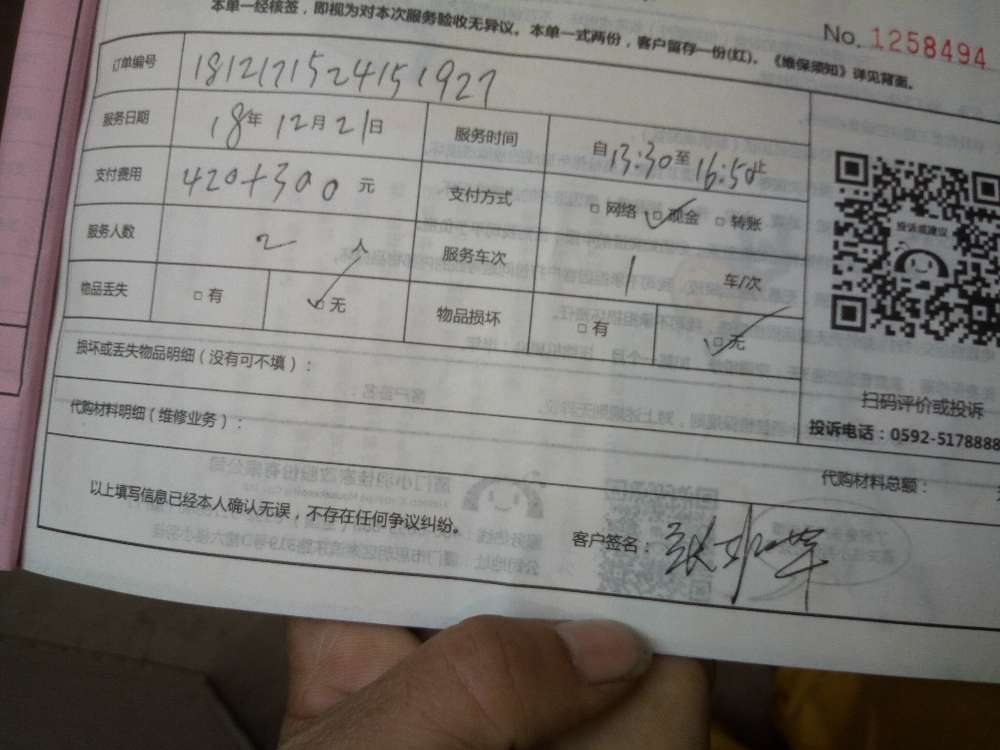 本单一经核签，即视为对本次服务验收无异议。本单一式两份，客户留存一份(红)。《维保须知》详见背面。
No. 1258494
订单编号 1812171524151927
服务日期 18年 12月21日 服务时间 自13:30至16:50止
支付费用 420+300元 支付方式 □网络 ☑现金 □转账
服务人数 2 人 服务车次 1 车/次
物品丢失 □有 ☑无 物品损坏 □有 ☑无
投诉或建议
损坏或丢失物品明细（没有可不填）：
扫码评价或投诉
投诉电话：0592-5178888
代购材料明细（维修业务）：
代购材料总额：
以上填写信息已经本人确认无误，不存在任何争议纠纷。
客户签名：